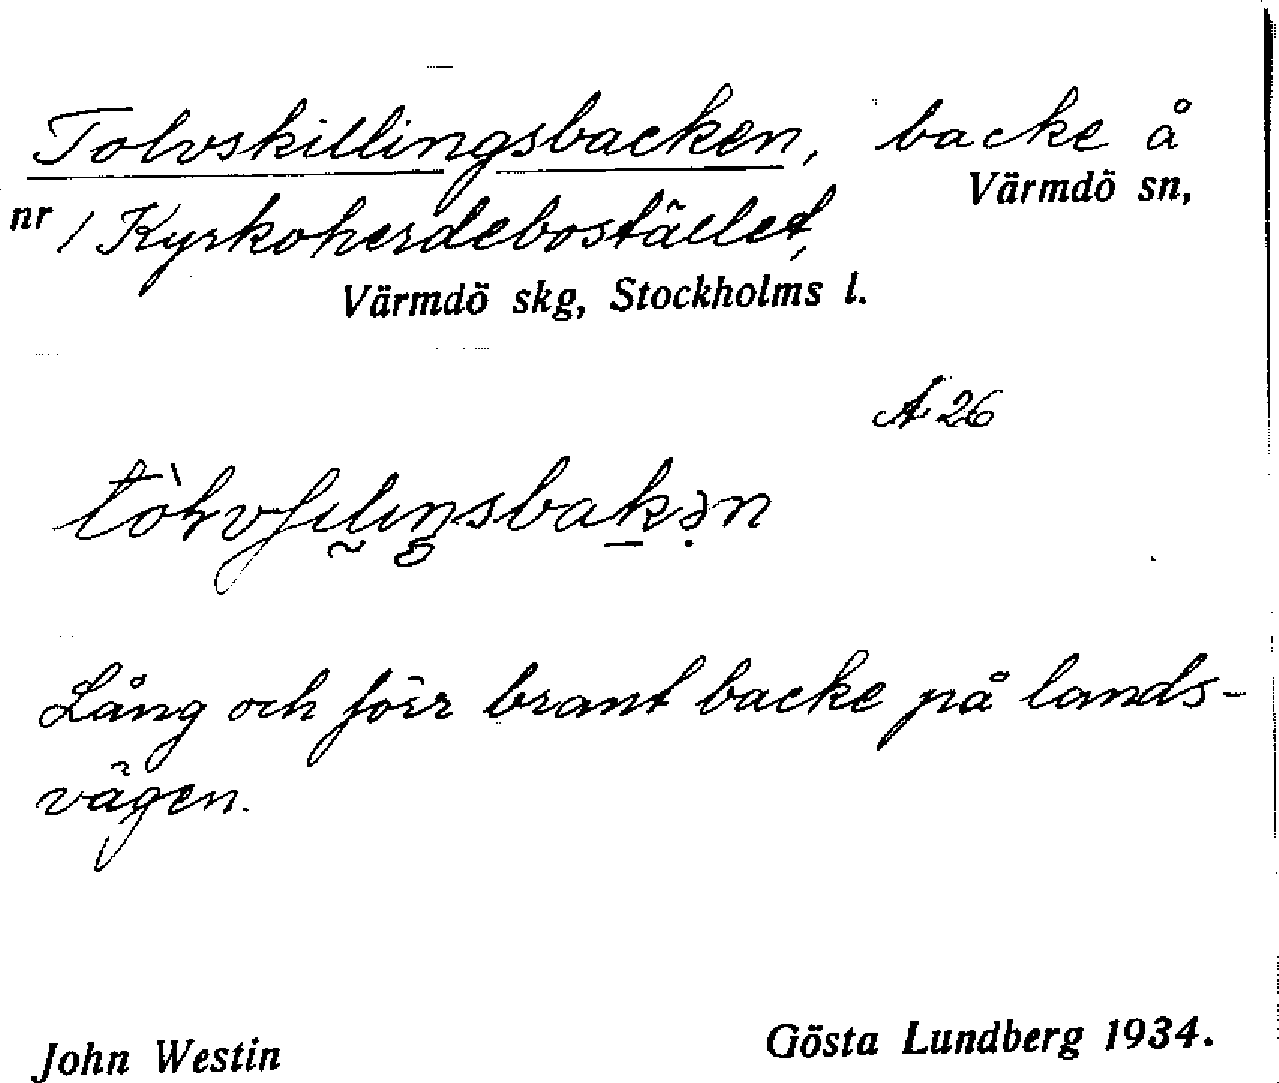 Tolvskillingsbacken, backe å
Värmdö sn,
nr 1 Kyrkoherdebostället,
Värmdö skg, Stockholms l.
A 26
Lång och förr brant backe på lands-
vägen.
John Westin
Gösta Lundberg 1934.